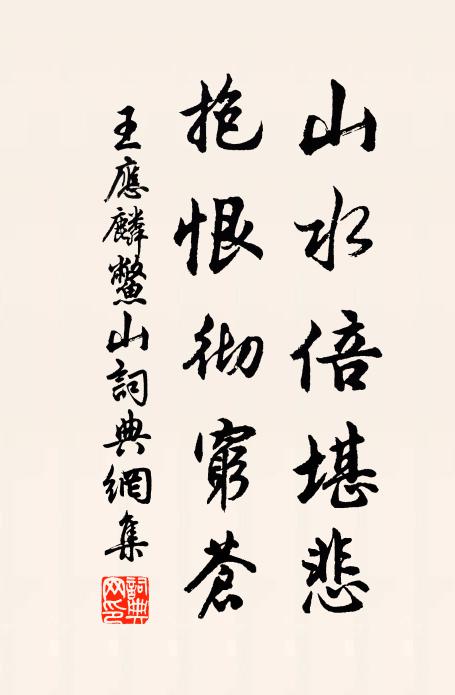 山水倍堪悲
抱恨彻窮蒼
王應麟鱉山詞典網集
詞典网印